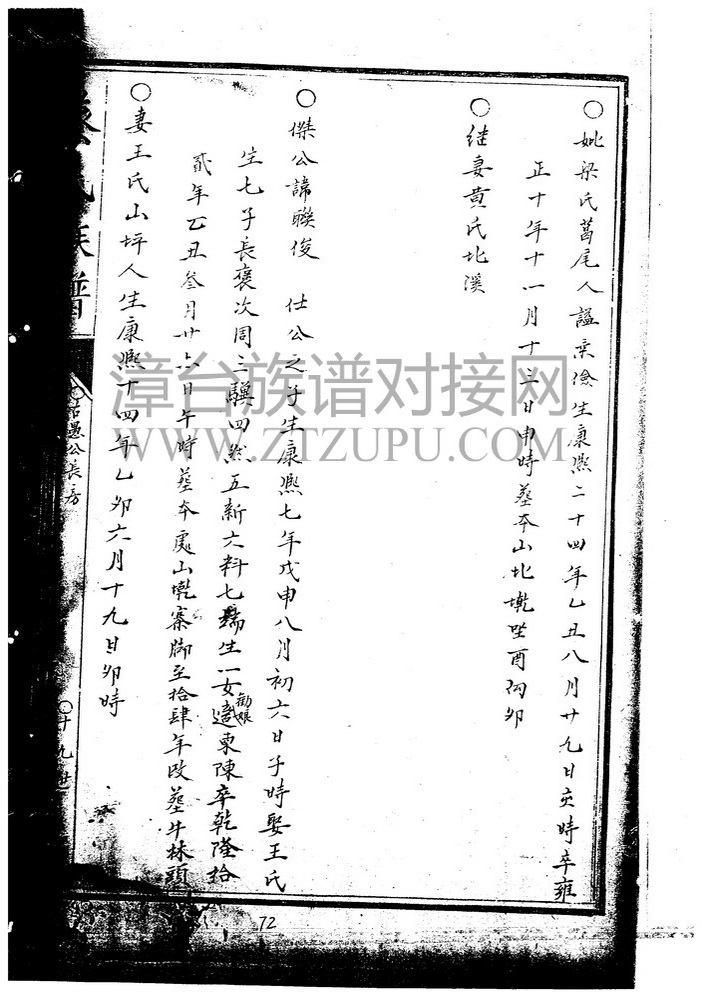 ○妣梁氏葛尾人謚柔儉生康熙二十四年乙丑八月廿九日亥時卒雍
正十年十一月十三日申時塟本山北墘坐酉向卯
○继妻黄氏北溪
○傑公諱聯俊 仕公之子生康熙七年戊申八月初六日子時娶王氏
生七子長褒次周三驥四然五新六料七瑞生一女勸娘適東陳卒乾隆拾
貳年乙丑叁月廿六日午時塟本處山墘寨脚至拾肆年改塟牛林頭
○妻王氏山坪人生康熙十四年乙卯六月十九日卯時
氏族譜
愚公長房
○十九世
漳台族谱对接网
WWW.ZTZUPU.COM
72